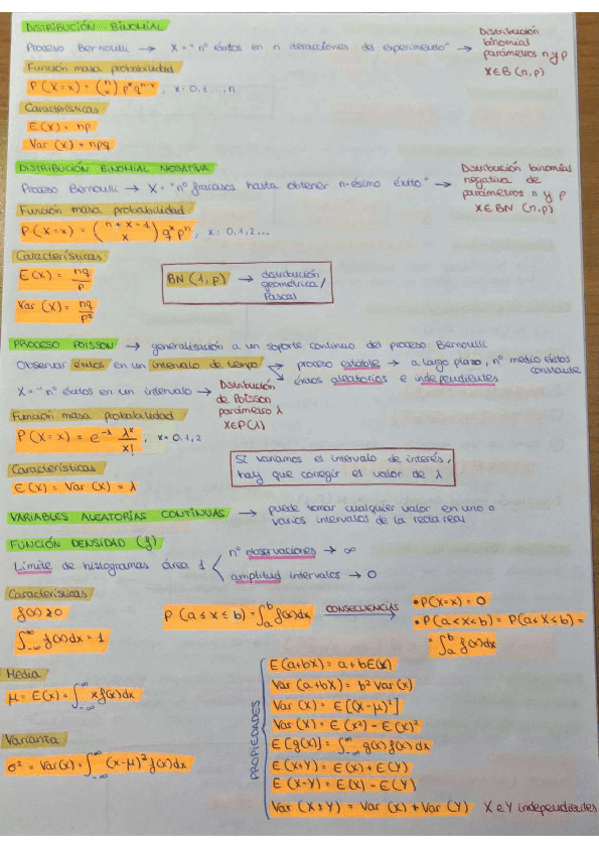 DISTRIBUCIÓN BINOMIAL
Proceso Bernoulli → X = "nº éxitos en n iteracciones del experimento" → Distribución binomial parámetros n y p X∈B (n,p)
Función masa probabilidad
P(X=x) = (n x) p^x q^(n-x), x: 0,1...,n
Características
E(x) = np
Var (x) = npq
DISTRIBUCIÓN BINOMIAL NEGATIVA
Proceso Bernoulli → X = "nº fracasos hasta obtener n-ésimo éxito" → Distribución binomial negativa de parámetros n y p X∈BN (n,p)
Función masa probabilidad
P(X=x) = (n+x-1 x) q^x p^n, x: 0,1,2...
Características
E(x) = nq/p
BN (1,p) → distribución geométrica/Pascal
Var (x) = nq/p²
PROCESO POISSON → generalización a un soporte continuo del proceso Bernoulli
Observar éxitos en un intervalo de tiempo → proceso estable → a largo plazo, nº medio éxitos constante
→ éxitos aleatorios e independientes
X = "nº éxitos en un intervalo" → Distribución de Poisson parámetro λ X∈P(λ)
Función masa probabilidad
P(X=x) = e^-λ λ^x/x!, x=0,1,2
Si variamos el intervalo de interés, hay que corregir el valor de λ
Características
E(x) = Var (x) = λ
VARIABLES ALEATORIAS CONTINUAS → puede tomar cualquier valor en uno o varios intervalos de la recta real
FUNCIÓN DENSIDAD (f)
Límite de histogramas área 1 nº observaciones → ∞
amplitud intervalos → 0
Características
f(x) ≥ 0
∫_-∞^∞ f(x)dx = 1
P (a≤x≤b) = ∫_a^b f(x)dx CONSECUENCIAS → • P(X=x) = 0
• P(a<x<b) = P(a≤x≤b) =
= ∫_a^b f(x)dx
Media
μ = E(x) = ∫_-∞^∞ xf(x)dx
Varianza
σ² = Var(x) = ∫_-∞^∞ (x-μ)² f(x)dx
PROPIEDADES
E(a+bX) = a+bE(x)
Var (a+bX) = b² Var(x)
Var (x) = E[(X-μ)²]
Var (x) = E(x²) - E(x)²
E[g(x)] = ∫_-∞^∞ g(x) f(x)dx
E(X+Y) = E(x) + E(Y)
E(X-Y) = E(x) - E(Y)
Var (X±Y) = Var (x) + Var (Y) X e Y independientes